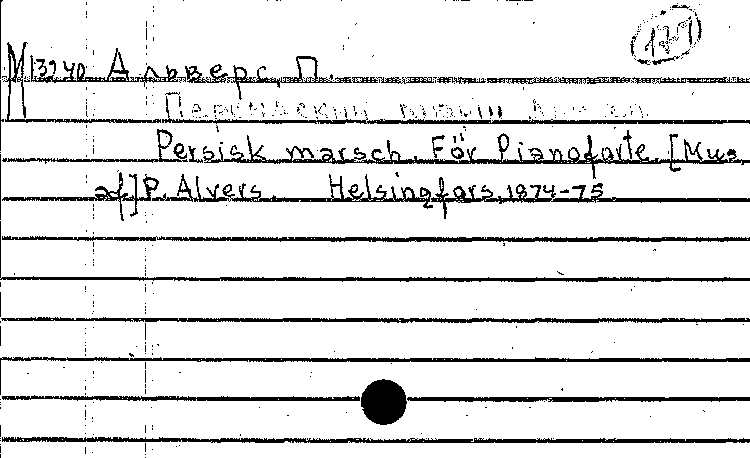 177
М13240 Альверс, П.
Персидский марш для
Persisk marsch. För Pianoforte. [Mus.
af] P. Alvers. Helsingfors, 1874-75